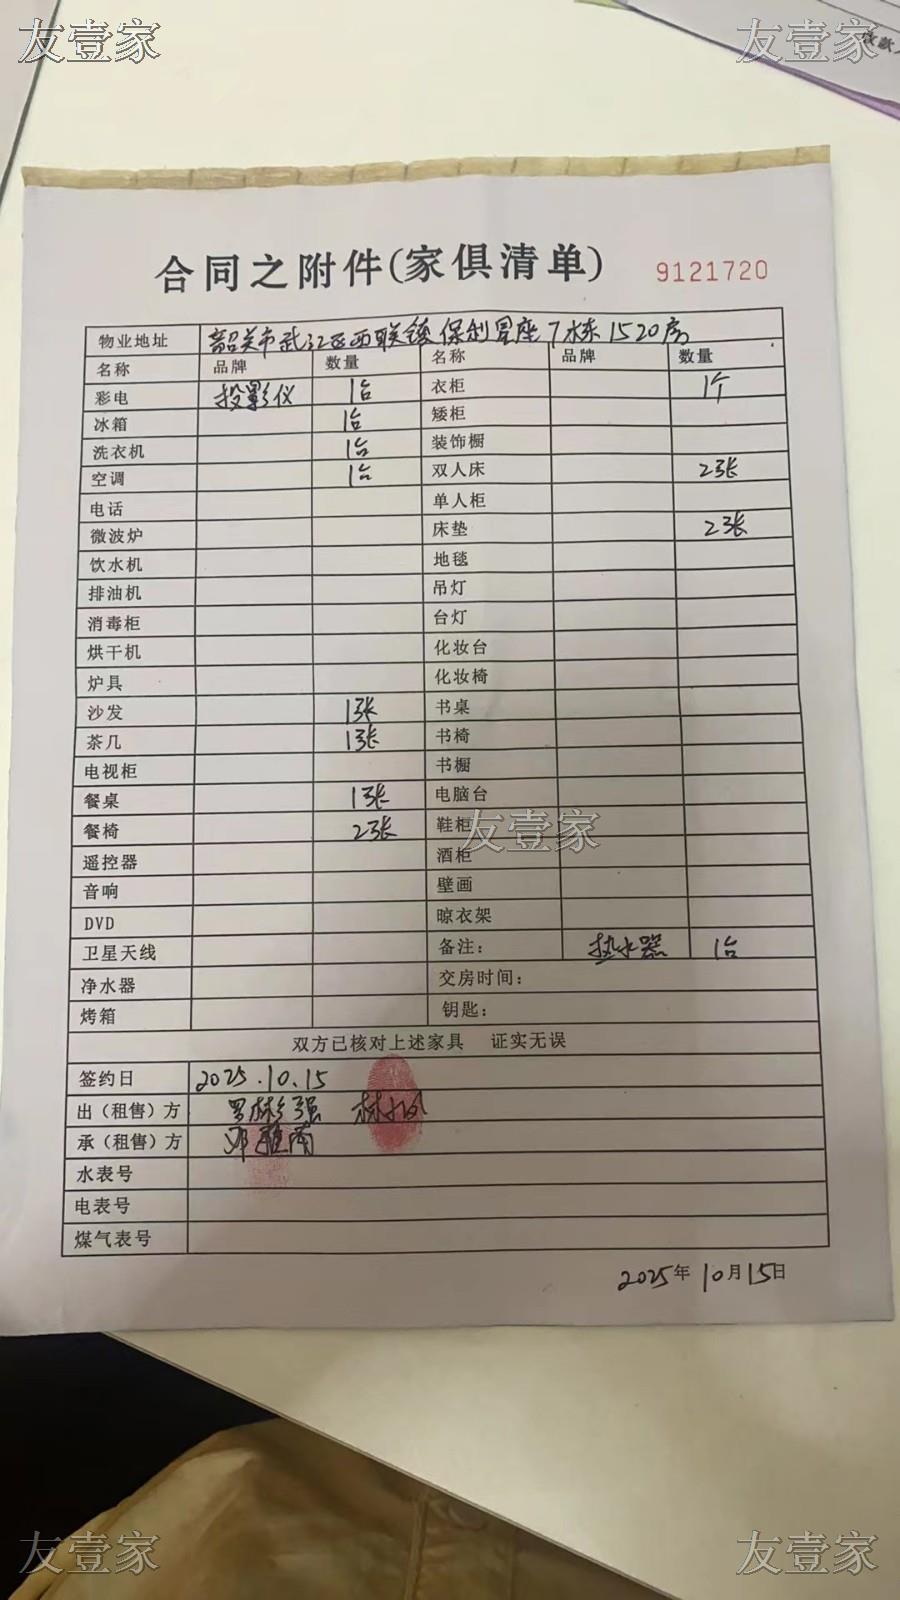 友壹家 友壹家
收款人
合同之附件(家俱清单) 9121720
物业地址 韶关市武江区西联镇保利星座7栋1520房
名称 品牌 数量 名称 品牌 数量
彩电 投影仪 1台 衣柜 1个
冰箱 1台 矮柜
洗衣机 1台 装饰橱
空调 1台 双人床 2张
电话 单人柜
微波炉 床垫 2张
饮水机 地毯
排油机 吊灯
消毒柜 台灯
烘干机 化妆台
炉具 化妆椅
沙发 1张 书桌
茶几 1张 书椅
电视柜 书橱
餐桌 1张 电脑台
餐椅 2张 鞋柜
友壹家
遥控器 酒柜
音响 壁画
DVD 晾衣架
卫星天线 备注: 热水器 1台
净水器 交房时间:
烤箱 钥匙:
双方已核对上述家具 证实无误
签约日 2025.10.15
出（租售）方 罗彬强
承（租售）方 邓雅南
水表号
电表号
煤气表号
2025年10月15日
友壹家 友壹家